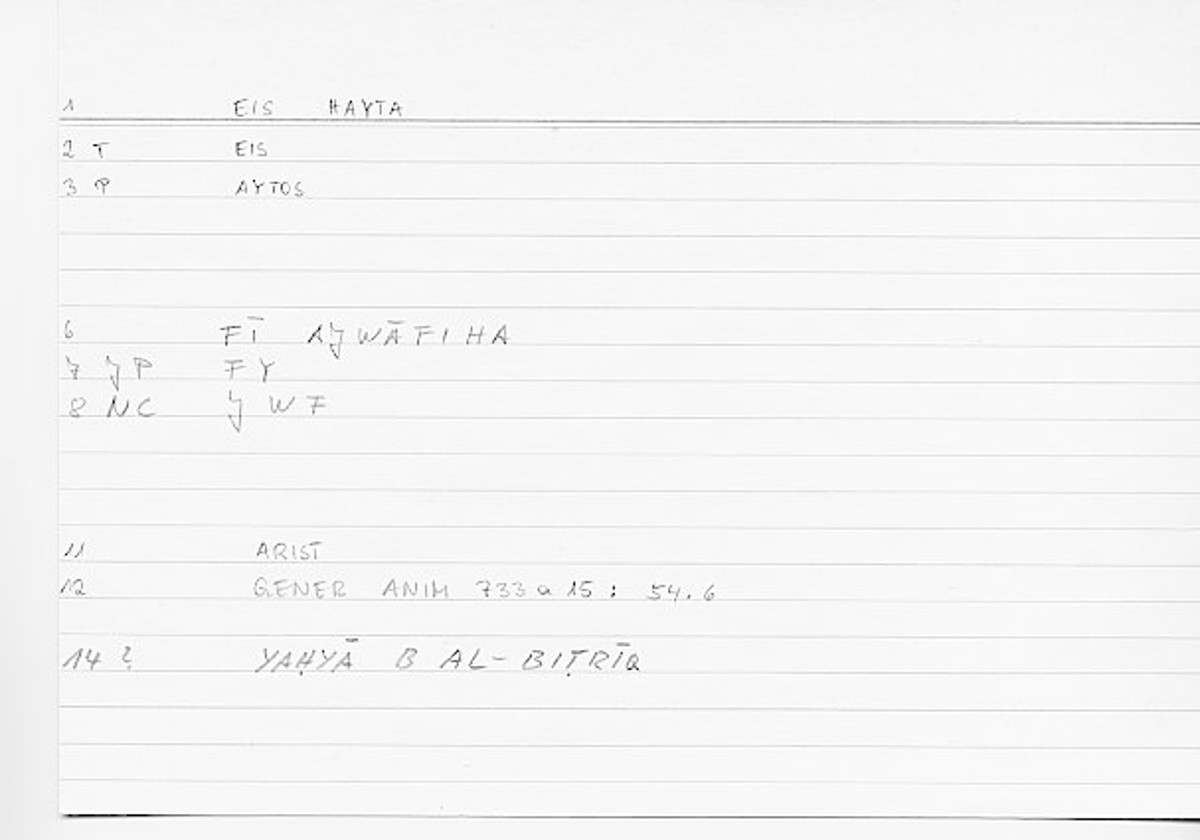 1 EIS HAYTA
2 T EIS
3 P AYTOS
6 FĪ AJWĀFIHA
7 JP FY
8 NC JWF
11 ARIST
12 GENER ANIM 733a15: 54.6
14 ? YAḤYĀ B AL-BIṬRĪQ